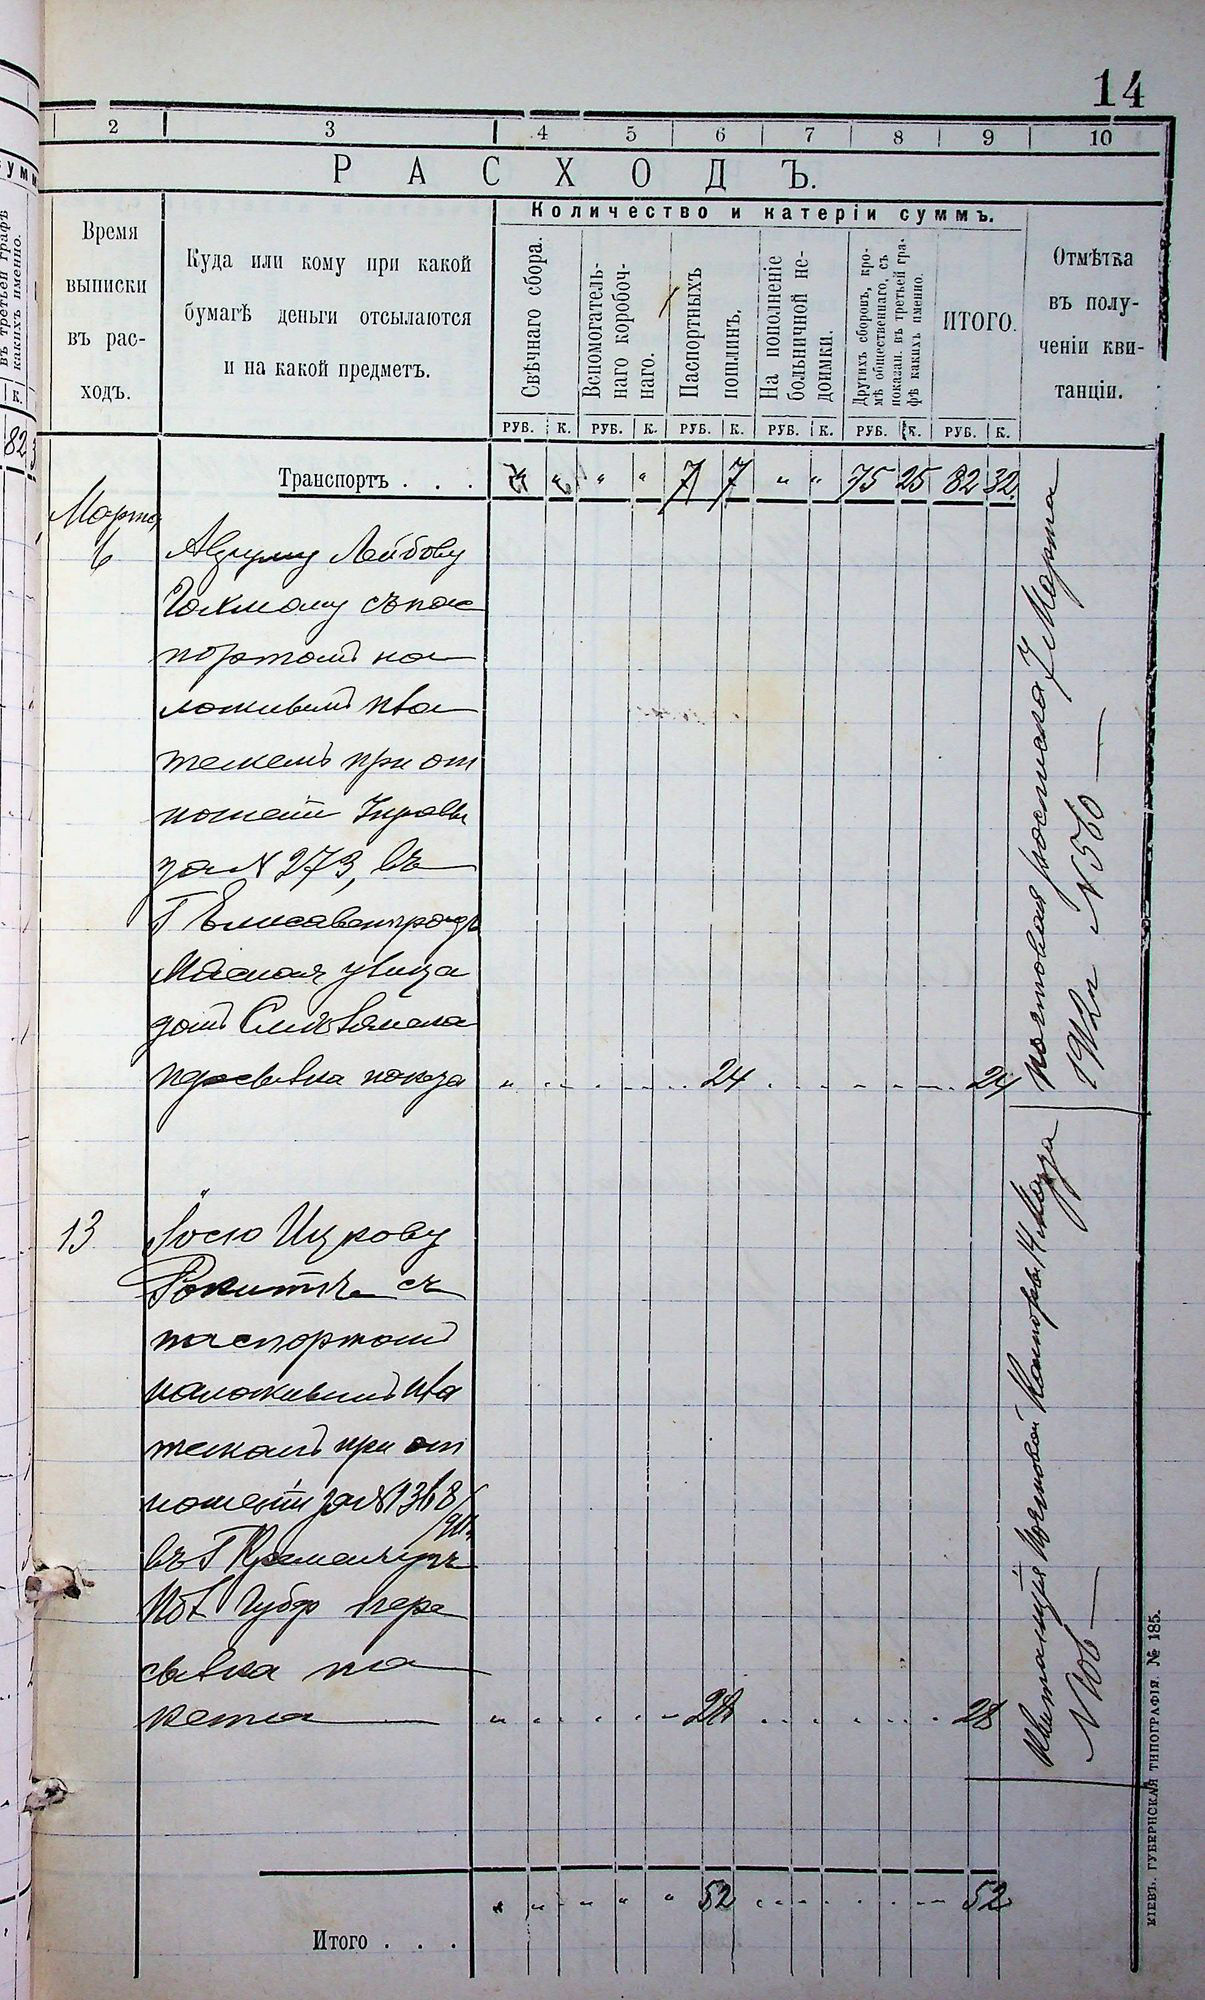 14
2 3 4 5 6 7 8 9 10
РАСХОДЪ.
Количество и катеріи суммъ.
Время
выписки
въ рас-
ходъ.
Куда или кому при какой
бумагѣ деньги отсылаются
и на какой предметъ.
Свѣчнаго сбора.
Вспомогатель-
наго коробоч-
наго.
Паспортныхъ
пошлинъ.
На пополненіе
больничной не-
доимки.
Другихъ сборовъ, кро-
мѣ общественнаго, съ
показан. въ третьей гра-
фѣ какихъ именно.
ИТОГО.
Отмѣтка
въ полу-
ченіи кви-
танціи.
РУБ. К. РУБ. К. РУБ. К. РУБ. К. РУБ. К. РУБ. К.
въ третьей графѣ
какихъ именно.
К.
82
Транспортъ . . . 7 7 75 25 82 32
Марта
6
Лейбову
съ пас
портомъ на
ложивши пла
тежемъ при от
ношеніи Управы
за № 273, въ
Г Елисаветградъ
Мясная улица
домъ
24 24
почтовая росписка 7 Марта
1912 г № 560 —
13
Іосю Ицкову
Рокитѣ съ
паспортомъ
наложивши пла
тежомъ при от
ношеніи за № 1368/
911
въ Г Кременчугъ
Пол Губ пере
сылка па
кета 28 28
Квитанція Почтовой Конторы 14 Марта
№ 106 —
52 52
Итого . . .
КІЕВЪ. ГУБЕРНСКАЯ ТИПОГРАФІЯ. № 185.